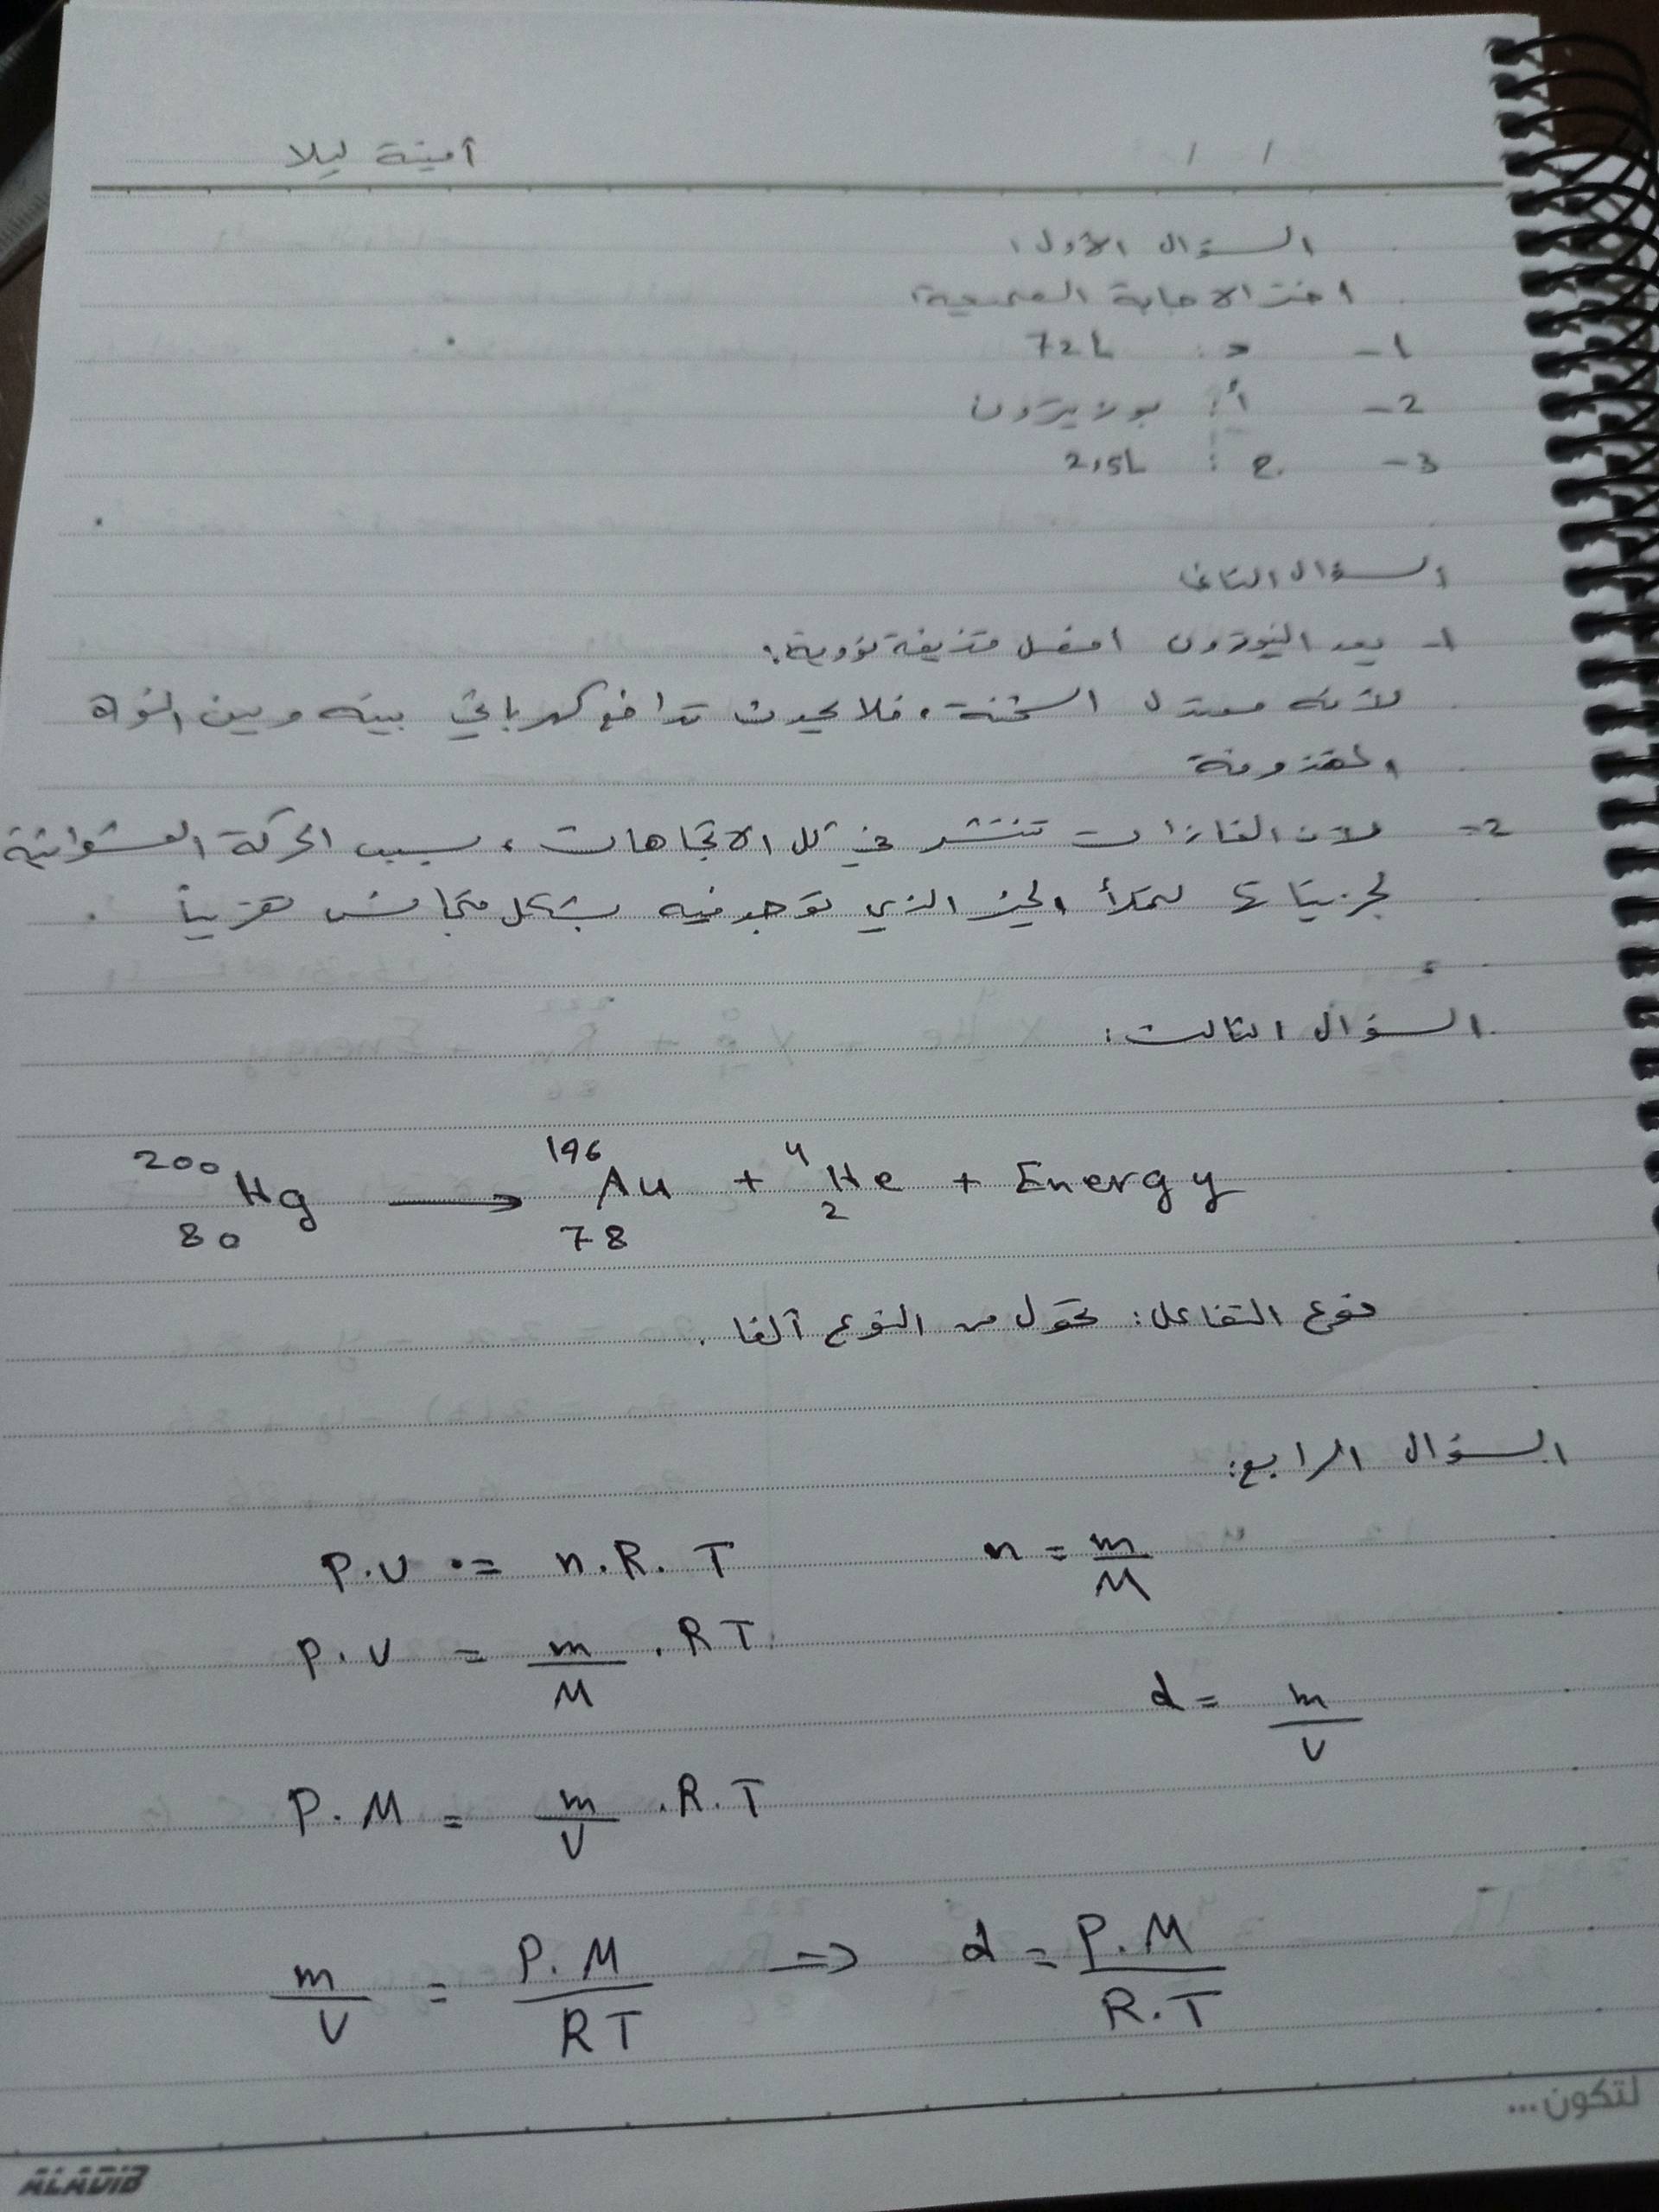 أمينة ليلا
/ /
السؤال الأول:
اختر الاجابة الصحيحة:
1- د: 72L
2- أ: بوزيترون
3- ج: 2,5L
السؤال الثاني
1- يعد النيوترون افضل قذيفة نووية:
لأنه معتدل الشحنة، فلا يحدث تدافع كهربائي بينه وبين النواة
المقذوفة
2- لأن الغازات تنتشر في كل الاتجاهات، بسبب الحركة العشوائية
لجزيئاتها لتملأ الحيز الذي توجد فيه بشكل متجانس تقريباً.
السؤال الثالث:
²⁰⁰₈₀Hg → ¹⁹⁶₇₈Au + ⁴₂He + Energy
نوع التفاعل: تحول من النوع ألفا.
السؤال الرابع:
P.V = n.R.T n = m/M
P.V = m/M . RT
d = m/V
P.M = m/V .R.T
m/V = P.M/RT => d = P.M/R.T
لتكون...
ALADIB